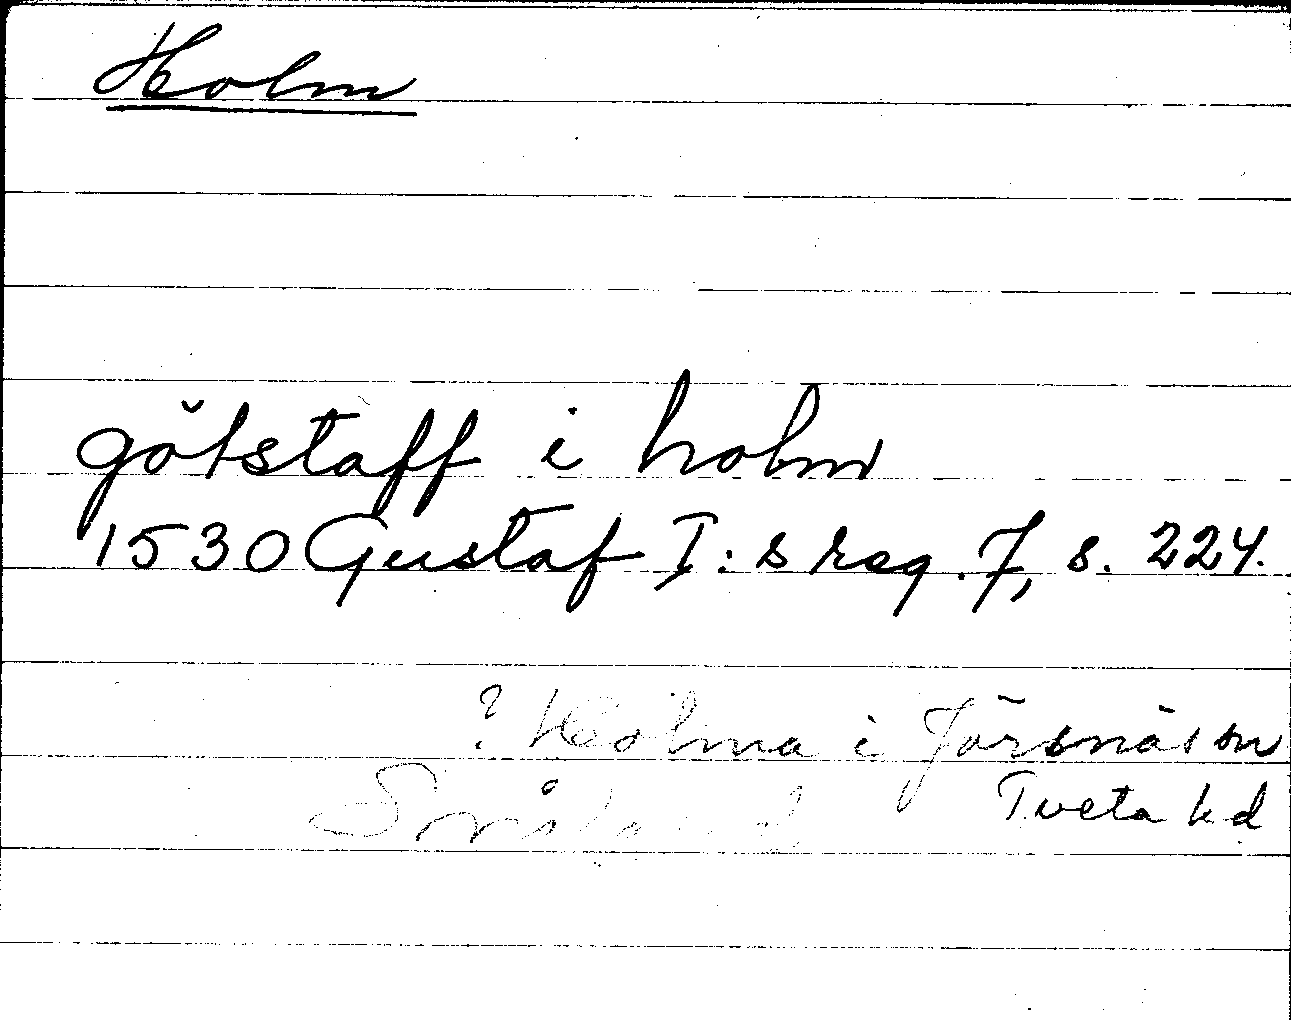 Holm
götstaff i holm
1530 Gustaf I:s reg. 7, s. 224.
? Holma i Järsnäs sn
Tveta hd
Småland